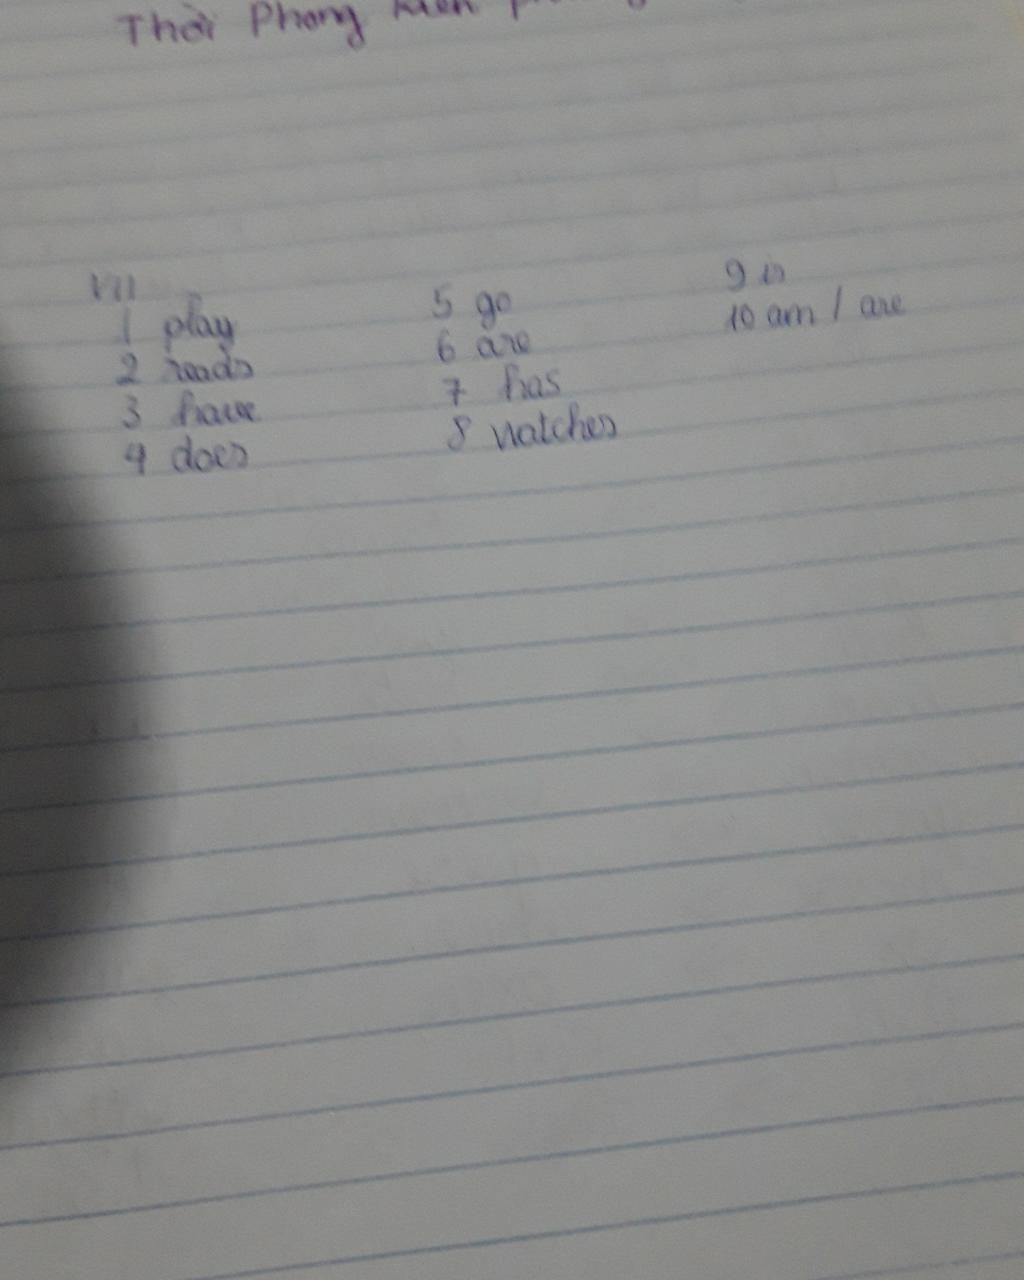 Thời Phong kiến
VII
1 play
2 reads
3 have
4 does
5 go
6 are
7 has
8 watches
9 is
10 am / are